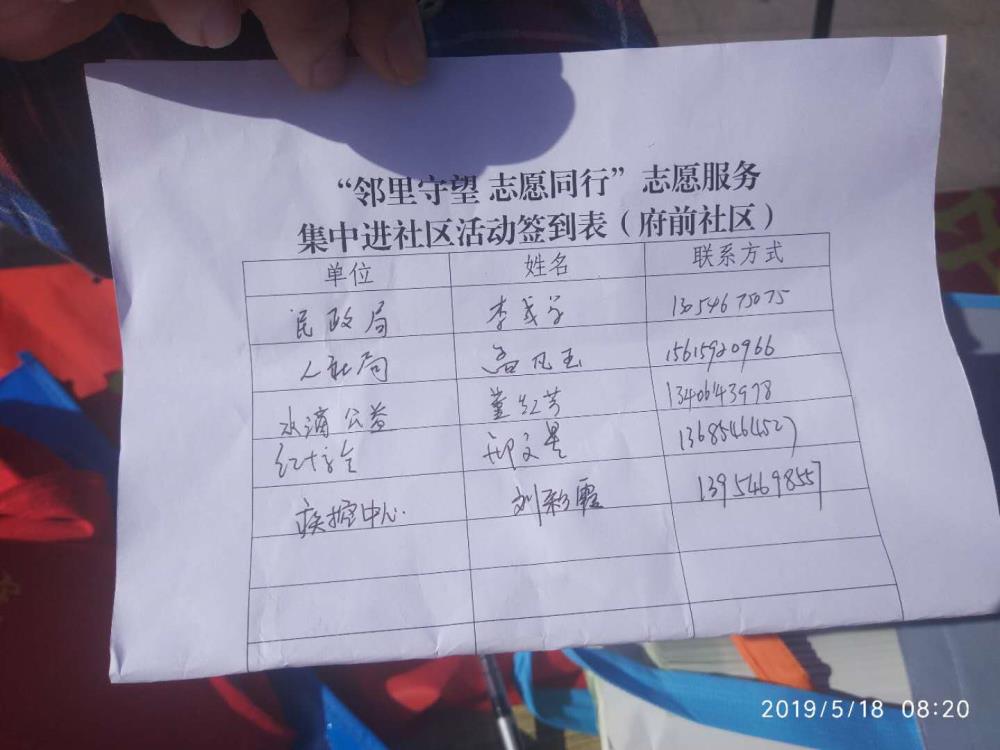 “邻里守望 志愿同行”志愿服务
集中进社区活动签到表（府前社区）
单位 姓名 联系方式
民政局 李 13054675075
人社局 孟凡玉 15615920966
水滴公益 董红芳 13406143978
红十字会 邢文昊 13685464527
疾控中心. 刘彩霞 13954698557
2019/5/18 08:20